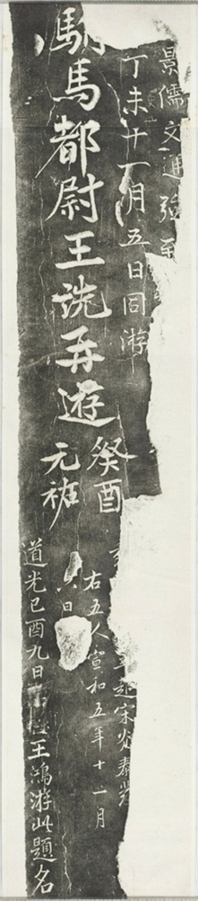 景儒文通強至
丁未十一月五日同游
駙馬都尉王詵再遊
癸酉
元祐
六日
趙宋炎泰
右五人宣和五年十一月
道光己酉九日
王鴻游此題名